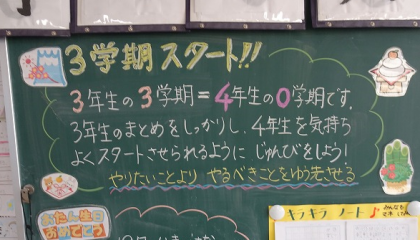 3学期スタート!!
3年生の3学期=4年生の0学期です。
3年生のまとめをしっかりし、4年生を気持ち
よくスタートさせられるように じゅんびをしよう!
やりたいことより やるべきことをゆう先させる
おたん生日
おめでとう
キラキラ ノート♪